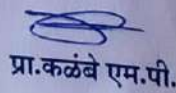 प्रा.कळंबे एम.पी.